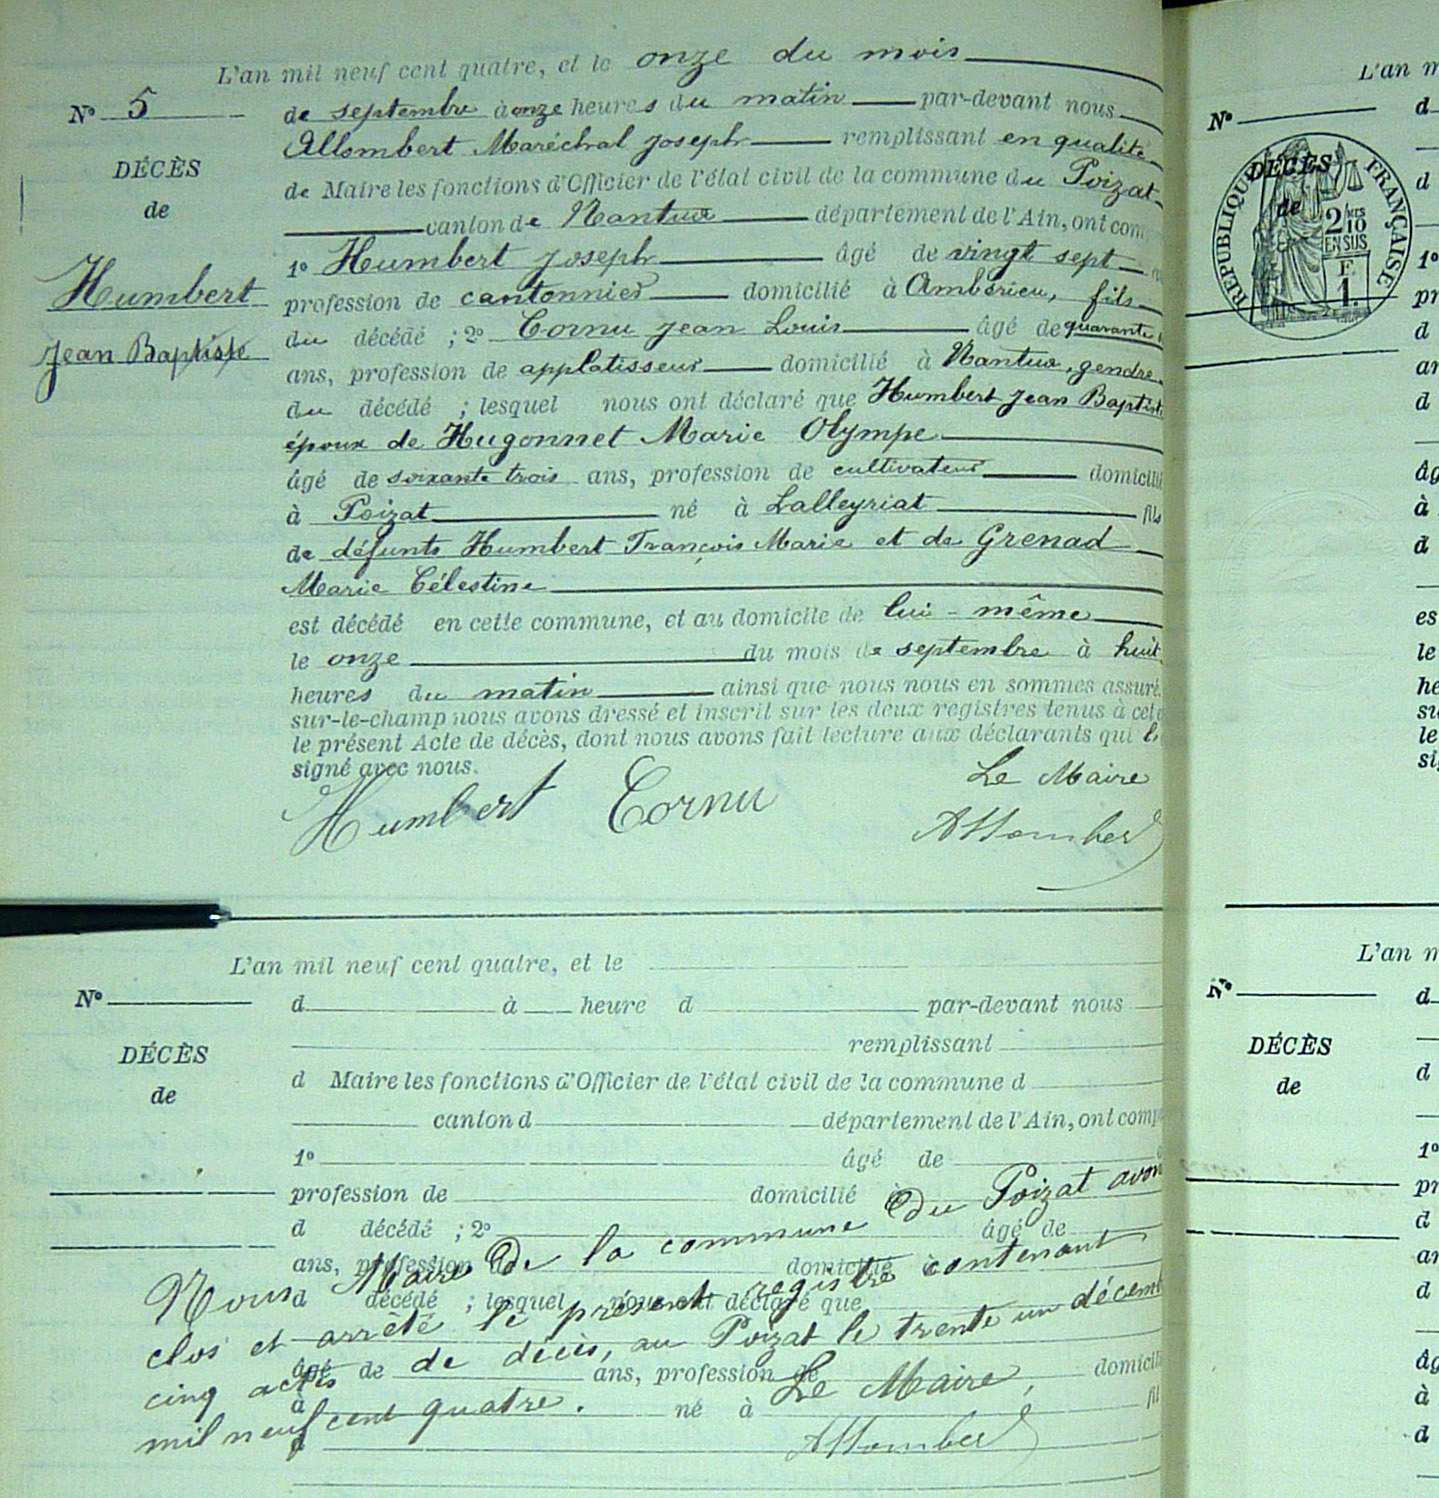 L'an mil neuf cent quatre, et le onze du mois
de septembre à onze heures du matin par-devant nous
Allombert Maréchal Joseph remplissant en qualité
de Maire les fonctions d'Officier de l'état civil de la commune du Poizat
canton de Nantua département de l'Ain, ont com
1º Humbert Joseph âgé de vingt sept
profession de cantonnier domicilié à Ambérieu, fils
du décédé ; 2º Cornu Jean Louis âgé de quarante
ans, profession de applatisseur domicilié à Nantua, gendre
du décédé ; lesquel nous ont déclaré que Humbert Jean Baptiste
époux de Hugonnet Marie Olympe
âgé de soixante trois ans, profession de cultivateur domicilié
à Poizat né à Lalleyriat fils
de défunts Humbert François Marie et de Grenad
Marie Célestine
est décédé en cette commune, et au domicile de lui-même
le onze du mois de septembre à huit
heures du matin ainsi que nous nous en sommes assuré.
sur-le-champ nous avons dressé et inscrit sur les deux registres tenus à cet e
le présent Acte de décès, dont nous avons fait lecture aux déclarants qui
signé avec nous.
Humbert Cornu Le Maire
Allombert
Nº 5
DÉCÈS
de
Humbert
Jean Baptiste
L'an mil neuf cent quatre, et le
d à heure d par-devant nous
remplissant
d Maire les fonctions d'Officier de l'état civil de la commune d
canton d département de l'Ain, ont comp
1º âgé de
profession de domicilié à
d décédé ; 2º âgé de
ans, profession de domicilié à
d décédé ; lesquel nous ont déclaré que
âgé de ans, profession de domicili
à né à fil
d
Nº
DÉCÈS
de
Nous Maire de la commune du Poizat avons
clos et arrêté le présent registre contenant
cinq actes de décès, au Poizat le trente un décemb
mil neuf cent quatre. Le Maire,
Allombert
L'an m
Nº
DÉCÈS
de
RÉPUBLIQUE FRANÇAISE
2/10 MES
EN SUS
F.
1.
d
d
1º
pr
d
an
d
âg
à
d
es
le
he
su
le
sig
L'an m
Nº
DÉCÈS
de
d
d
1º
pr
d
an
d
âg
à
d